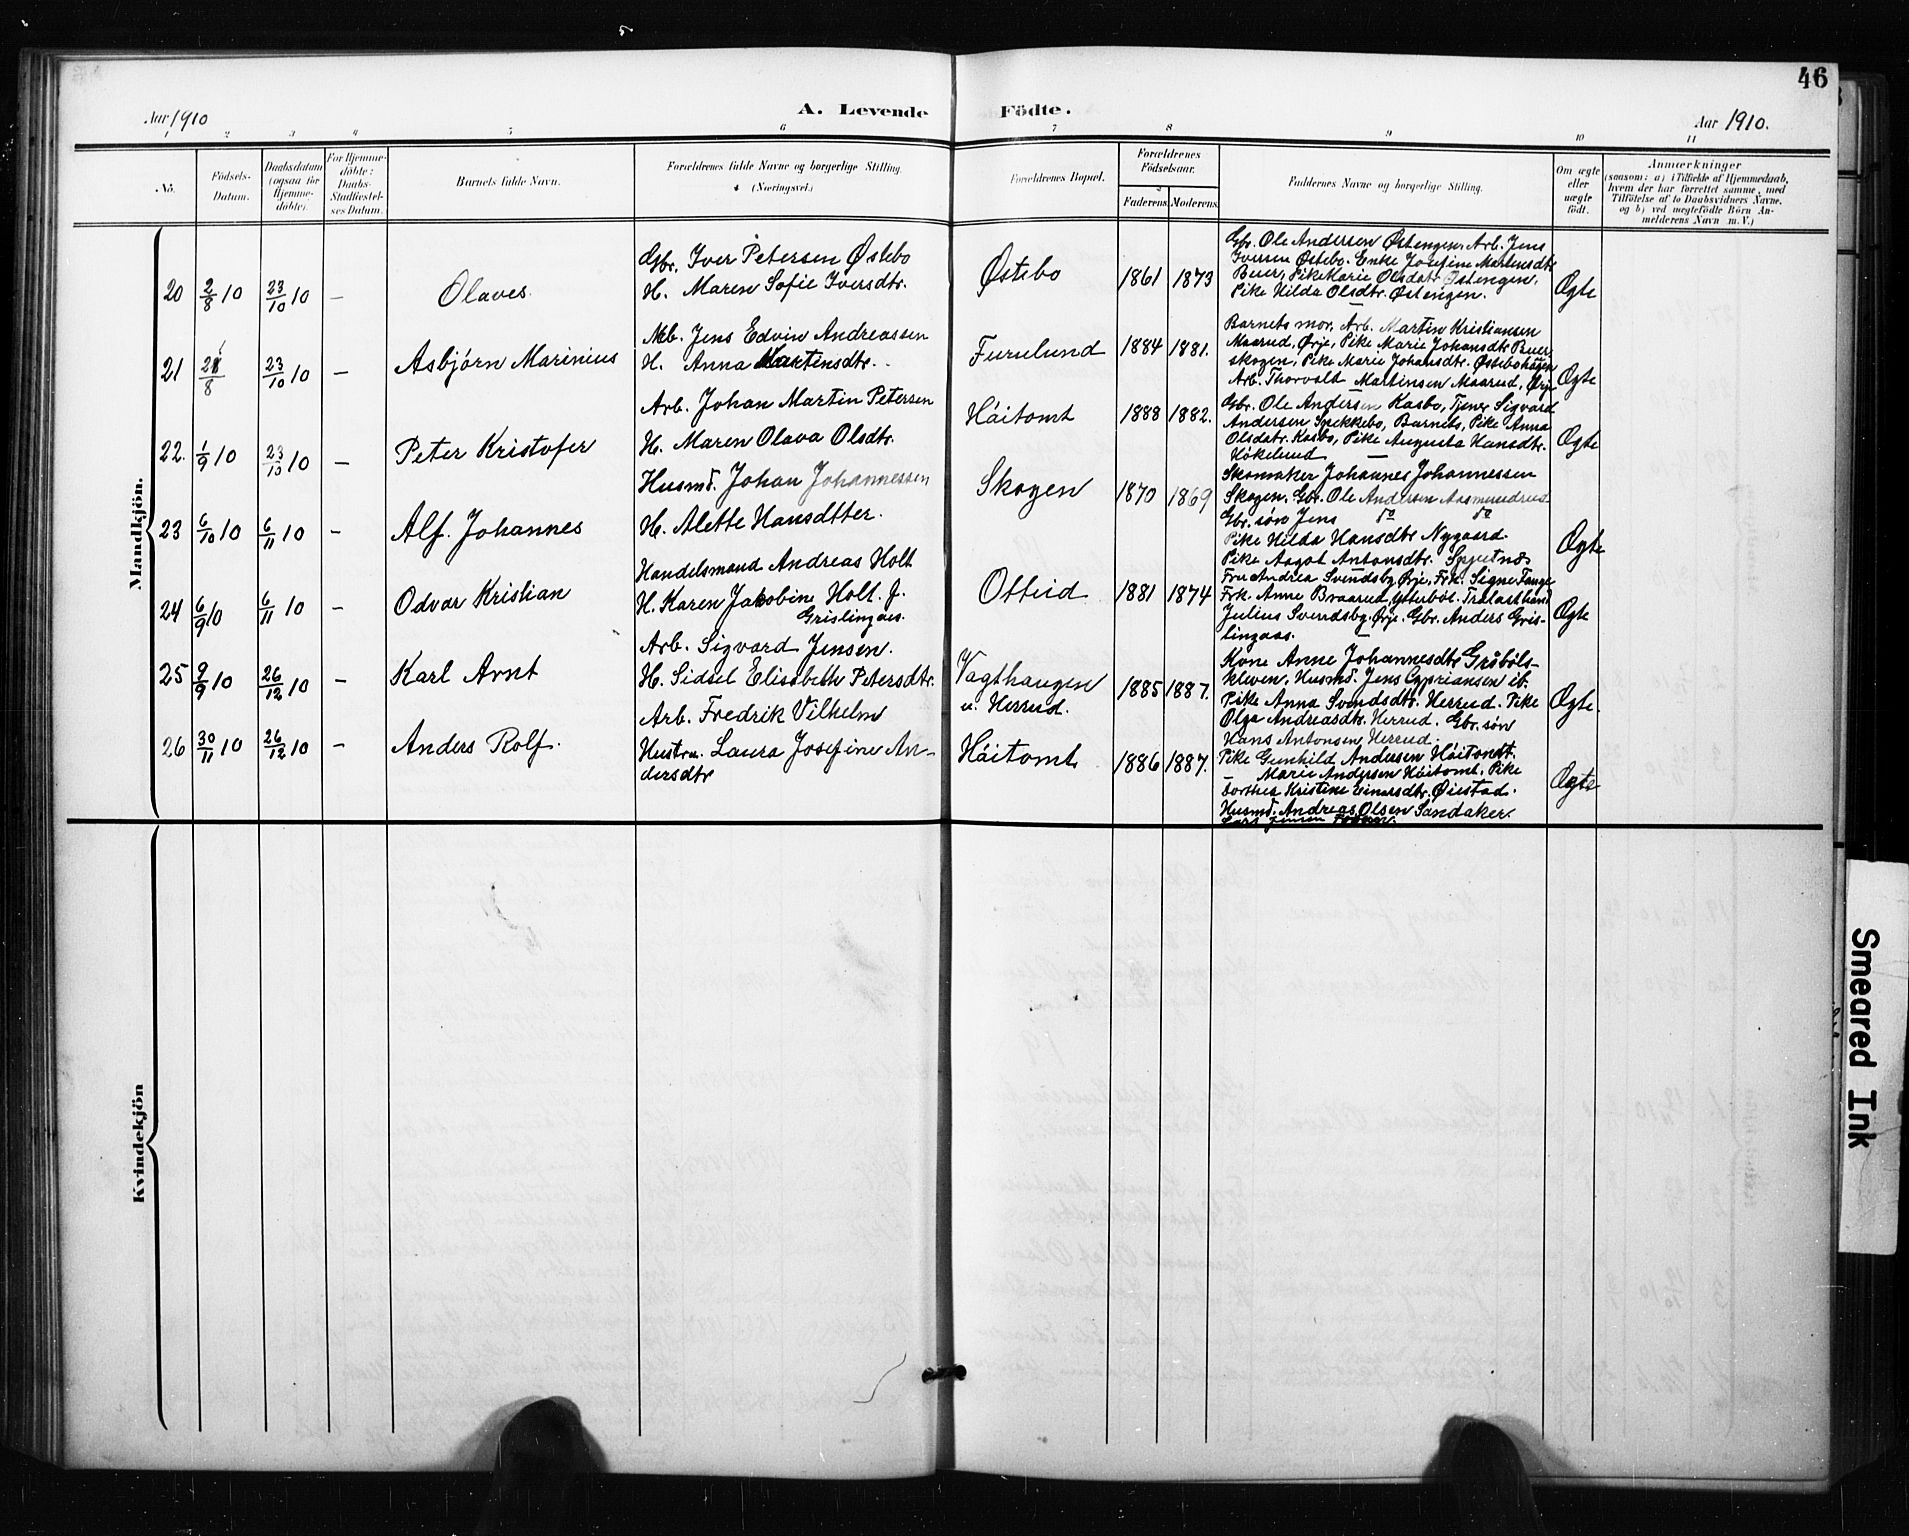 46
Aar 1910
A. Levende Födte.
Aar 1910.
1 2 3 4 5 6 7 8 9 10 11
No.
Födsels-
Datum.
Daabsdatum
(ogsaa for
Hjemme-
döbte).
For Hjemme-
döbte:
Daabs-
Stadfæstel-
ses Datum.
Barnets fulde Navn.
Forældrenes fulde Navne og borgerlige Stilling
(Næringsvei.)
Forældrenes Bopæl.
Forældrenes
Födselsaar.
Faderens. Moderens.
Faddernes Navne og borgerlige Stilling.
Om ægte
eller
uægte
født.
Anmærkninger
(saasom: a) i Tilfælde af Hjemmedaab,
hvem der har forrettet samme, med
Tilföielse af to Daabsvidners Navne.
og b) ved uægtefödte Börn An-
melderens Navn m. V.)
Mandkjön.
20 2/8 10 23/10 10 — Olaves.
Gbr. Iver Petersen Østebo
H. Maren Sofie Iversdtr.
Østebo 1861 1873
Gbr. Ole Andersen Østengen, Arb. Jens
Iversen Østebo. Enke Josefine Martinsdtr
Buer, Pike Marie Olsdatr Østengen,
Pike Hilda Olsdtr. Østengen.
Ægte
21 23/10 10 — Asbjørn Marinius
Arb. Jens Edvin Andreassen
H. Anna Martinsdtr.
Furulund 1884 1881.
Barnets mor, Arb. Martin Kristiansen
Maarud, Ørje, Pike Marie Johansdtr Buer-
skogen, Pike Marie Johansdtr. Østebohagen
Arb. Thorvald Martinsen Maarud, Ørje
Ægte
22. 1/9 10 23/10 10 — Peter Kristofer
Arb. Johan Martin Petersen
H. Maren Olava Olsdtr.
Høitomt 1888 1882.
Gbr. Ole Andersen Kasbo, Tjener Sigvard
Andersen Spekkebo, Barnets, Pike Anna
Olsdatr. Kasbo, Pike Augusta Hansdtr.
Høkelund —
Ægte
23 6/10 10 6/11 10 — Alf. Johannes
Husmd. Johan Johannessen
H. Alette Hansdtter.
Skogen 1870 1869
Skomaker Johannes Johannessen
Skogen. Gbr. Ole Andersen Aasmundrud
Gbr. søn Jens do do
Pike Hilda Hansdtr Nygaard.
Pike Aagot Antonsdtr. Spjutnæs
Ægte
24 6/9 10 6/11 10 — Odvar Kristian
Handelsmand Andreas Holt
H. Karen Jakobine Holt. f.
Grislingaas.
Otteid 1881 1874
Fru Andrea Svendsby Ørje, Frk. Signe Tange
Frk. Anne Braarud, Ytterböl. Trælasthand.
Julius Svendsby. Ørje. Gbr. Anders Gris-
lingaas. —
Ægte
25 9/9 10 26/12 10 — Karl Arnt
Arb. Sigvard Jensen.
H. Sidsel Elisabeth Petersdtr.
Vagthaugen
u. Herrud. 1885 1887.
Kone Anne Johannesdtr Gråböls-
kleven, Husmd. Jens Cypriansen ib.
Pike Anna Svendsdtr. Herrud. Pike
Olga Andreasdtr. Herrud. Gbr. søn
Hans Antonsen Herrud.
Ægte.
26 30/11 10 26/12 10 — Anders Rolf.
Arb. Fredrik Vilhelm
Hustru. Laura Josefine An-
dersdtr
Høitomt 1886 1887.
Pike Gunhild Andersen Høitomt.
Marie Andersen Høitomt, Pike
Dorthea Kristine Einarsdtr. Øiestad.
Husmd. Andreas Olsen Sandaker.
Lars Jensen
Ægte
Kvindekjön
Smeared Ink